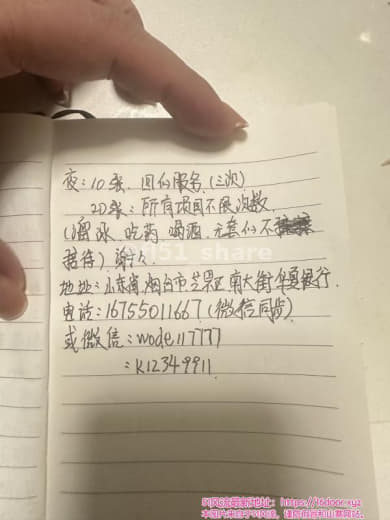 夜：10张，回的服务（三次）
20张：所有项目不限次数
（溜冰、吃药、喝酒、元素的不
接待）谢久
地址：山东省烟台市芝罘区南大街华夏银行.
电话：16755011667（微信同步）
或微信：wode117777
：k12349911
51 share
51风流最新地址：